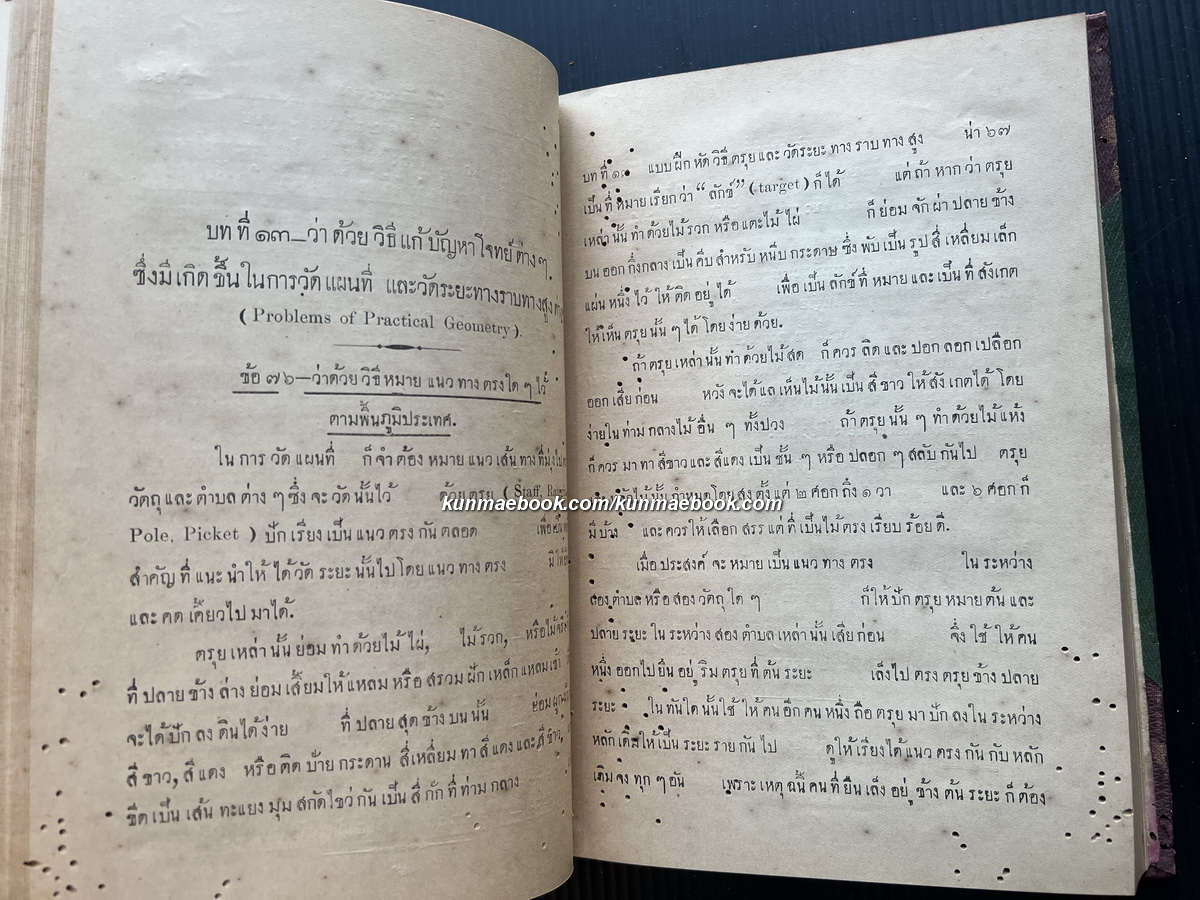 บทที่ ๑๓—ว่าด้วยวิธีแก้บัญหาโจทย์ต่างๆ.
ซึ่งมีเกิดขึ้นในการวัดแผนที่ และวัดระยะทางราบทางสูง
(Problems of Practical Geometry).
ข้อ ๗๖—ว่าด้วยวิธีหมายแนวทางตรงใดๆไว้
ตามพื้นภูมิประเทศ.
ในการวัดแผนที่ ก็จำต้องหมายแนวเส้นทางที่
วัตถุและตำบลต่างๆซึ่งจะวัดนั้นไว้ ด้วยตรุย (Staff,
Pole, Picket) ปักเรียงเป็นแนวตรงกันตลอด
สำคัญที่แนะนำให้ได้วัดระยะนั้นไปโดยแนวทางตรง
และคดเคี้ยวไปมาได้.
ตรุยเหล่านั้นย่อมทำด้วยไม้ไผ่, ไม้รวก,
ที่ปลายข้างล่างย่อมเสี้ยมให้แหลมหรือสรวมฝักเหล็กแหลมเข้า
จะได้ปักลงดินได้ง่าย ที่ปลายสุดข้างบนนั้น
สีขาว, สีแดง หรือติดป้ายกระดานสี่เหลี่ยมทาสีแดงและสีขาว,
ขีดเป็นเส้นทะแยงมุมสกัดไขว่กันเป็นสี่กักที่ท่ามกลาง
บทที่ ๑๓ แบบฝึกหัดวิธีตรุยและวัดระยะทางราบทางสูง น่า ๖๗
เป็นที่หมายเรียกว่า “ลักช์” (target) ก็ได้ แต่ถ้าหากว่าตรุย
เหล่านั้นทำด้วยไม้รวกหรือแตะไม้ไผ่ ก็ย่อมจักผ่าปลายข้าง
บนออกกึ่งกลางเป็นคีบสำหรับหนีบกระดาษซึ่งพับเป็นรูปสี่เหลี่ยมเล็ก
แผ่นหนึ่งไว้ให้ติดอยู่ได้ เพื่อเป็นลักช์ที่หมายและเป็นที่สังเกต
ให้เห็นตรุยนั้นๆได้โดยง่ายด้วย.
ถ้าตรุยเหล่านั้นทำด้วยไม้สด ก็ควรลิดและปอกลอกเปลือก
ออกเสียก่อน หวังจะได้แลเห็นไม้นั้นเป็นสีขาวให้สังเกตได้โดย
ง่ายในท่ามกลางไม้อื่นๆทั้งปวง ถ้าตรุยนั้นๆทำด้วยไม้แห้ง
ก็ควรมาทาสีขาวและสีแดงเป็นชั้นๆหรือปลอกๆสลับกันไป ตรุย
ไม้นั้นกำหนดโดยสูงตั้งแต่ ๒ ศอกถึง ๑ วา และ ๖ ศอกก็
มีบ้าง และควรให้เลือกสรรแต่ที่เป็นไม้ตรงเรียบร้อยดี.
เมื่อประสงค์จะหมายเป็นแนวทางตรง ในระหว่าง
สองตำบลหรือสองวัตถุใดๆ ก็ให้ปักตรุยหมายต้นและ
ปลายระยะในระหว่างสองตำบลเหล่านั้นเสียก่อน จึ่งใช้ให้คน
หนึ่งออกไปยืนอยู่ริมตรุยที่ต้นระยะ เล็งไปตรงตรุยข้างปลาย
ระยะ ในทันใดนั้นใช้ให้คนอีกคนหนึ่งถือตรุยมาปักลงในระหว่าง
หลักเดิมให้เป็นระยะรายกันไป ดูให้เรียงได้แนวตรงกันกับหลัก
เดิมจงทุกๆอัน เพราะเหตุฉนี้คนที่ยืนเล็งอยู่ข้างต้นระยะก็ต้อง
kunmaebook.com/kunmaebook.com